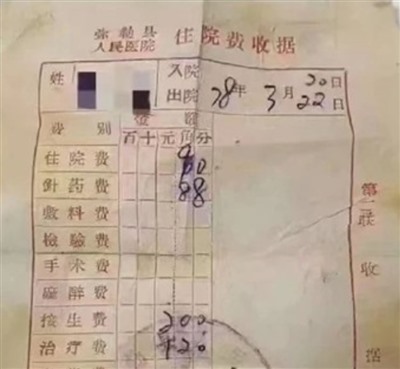 弥勒县
人民医院 住院费收据
姓 入院 78年 3月 20日
出院 22日
费别 金额
百十元角分
住院费 60
針药费 88
敷料费
檢驗费
手术费
麻醉费
接生费 200
治疗费 120
第二联收据